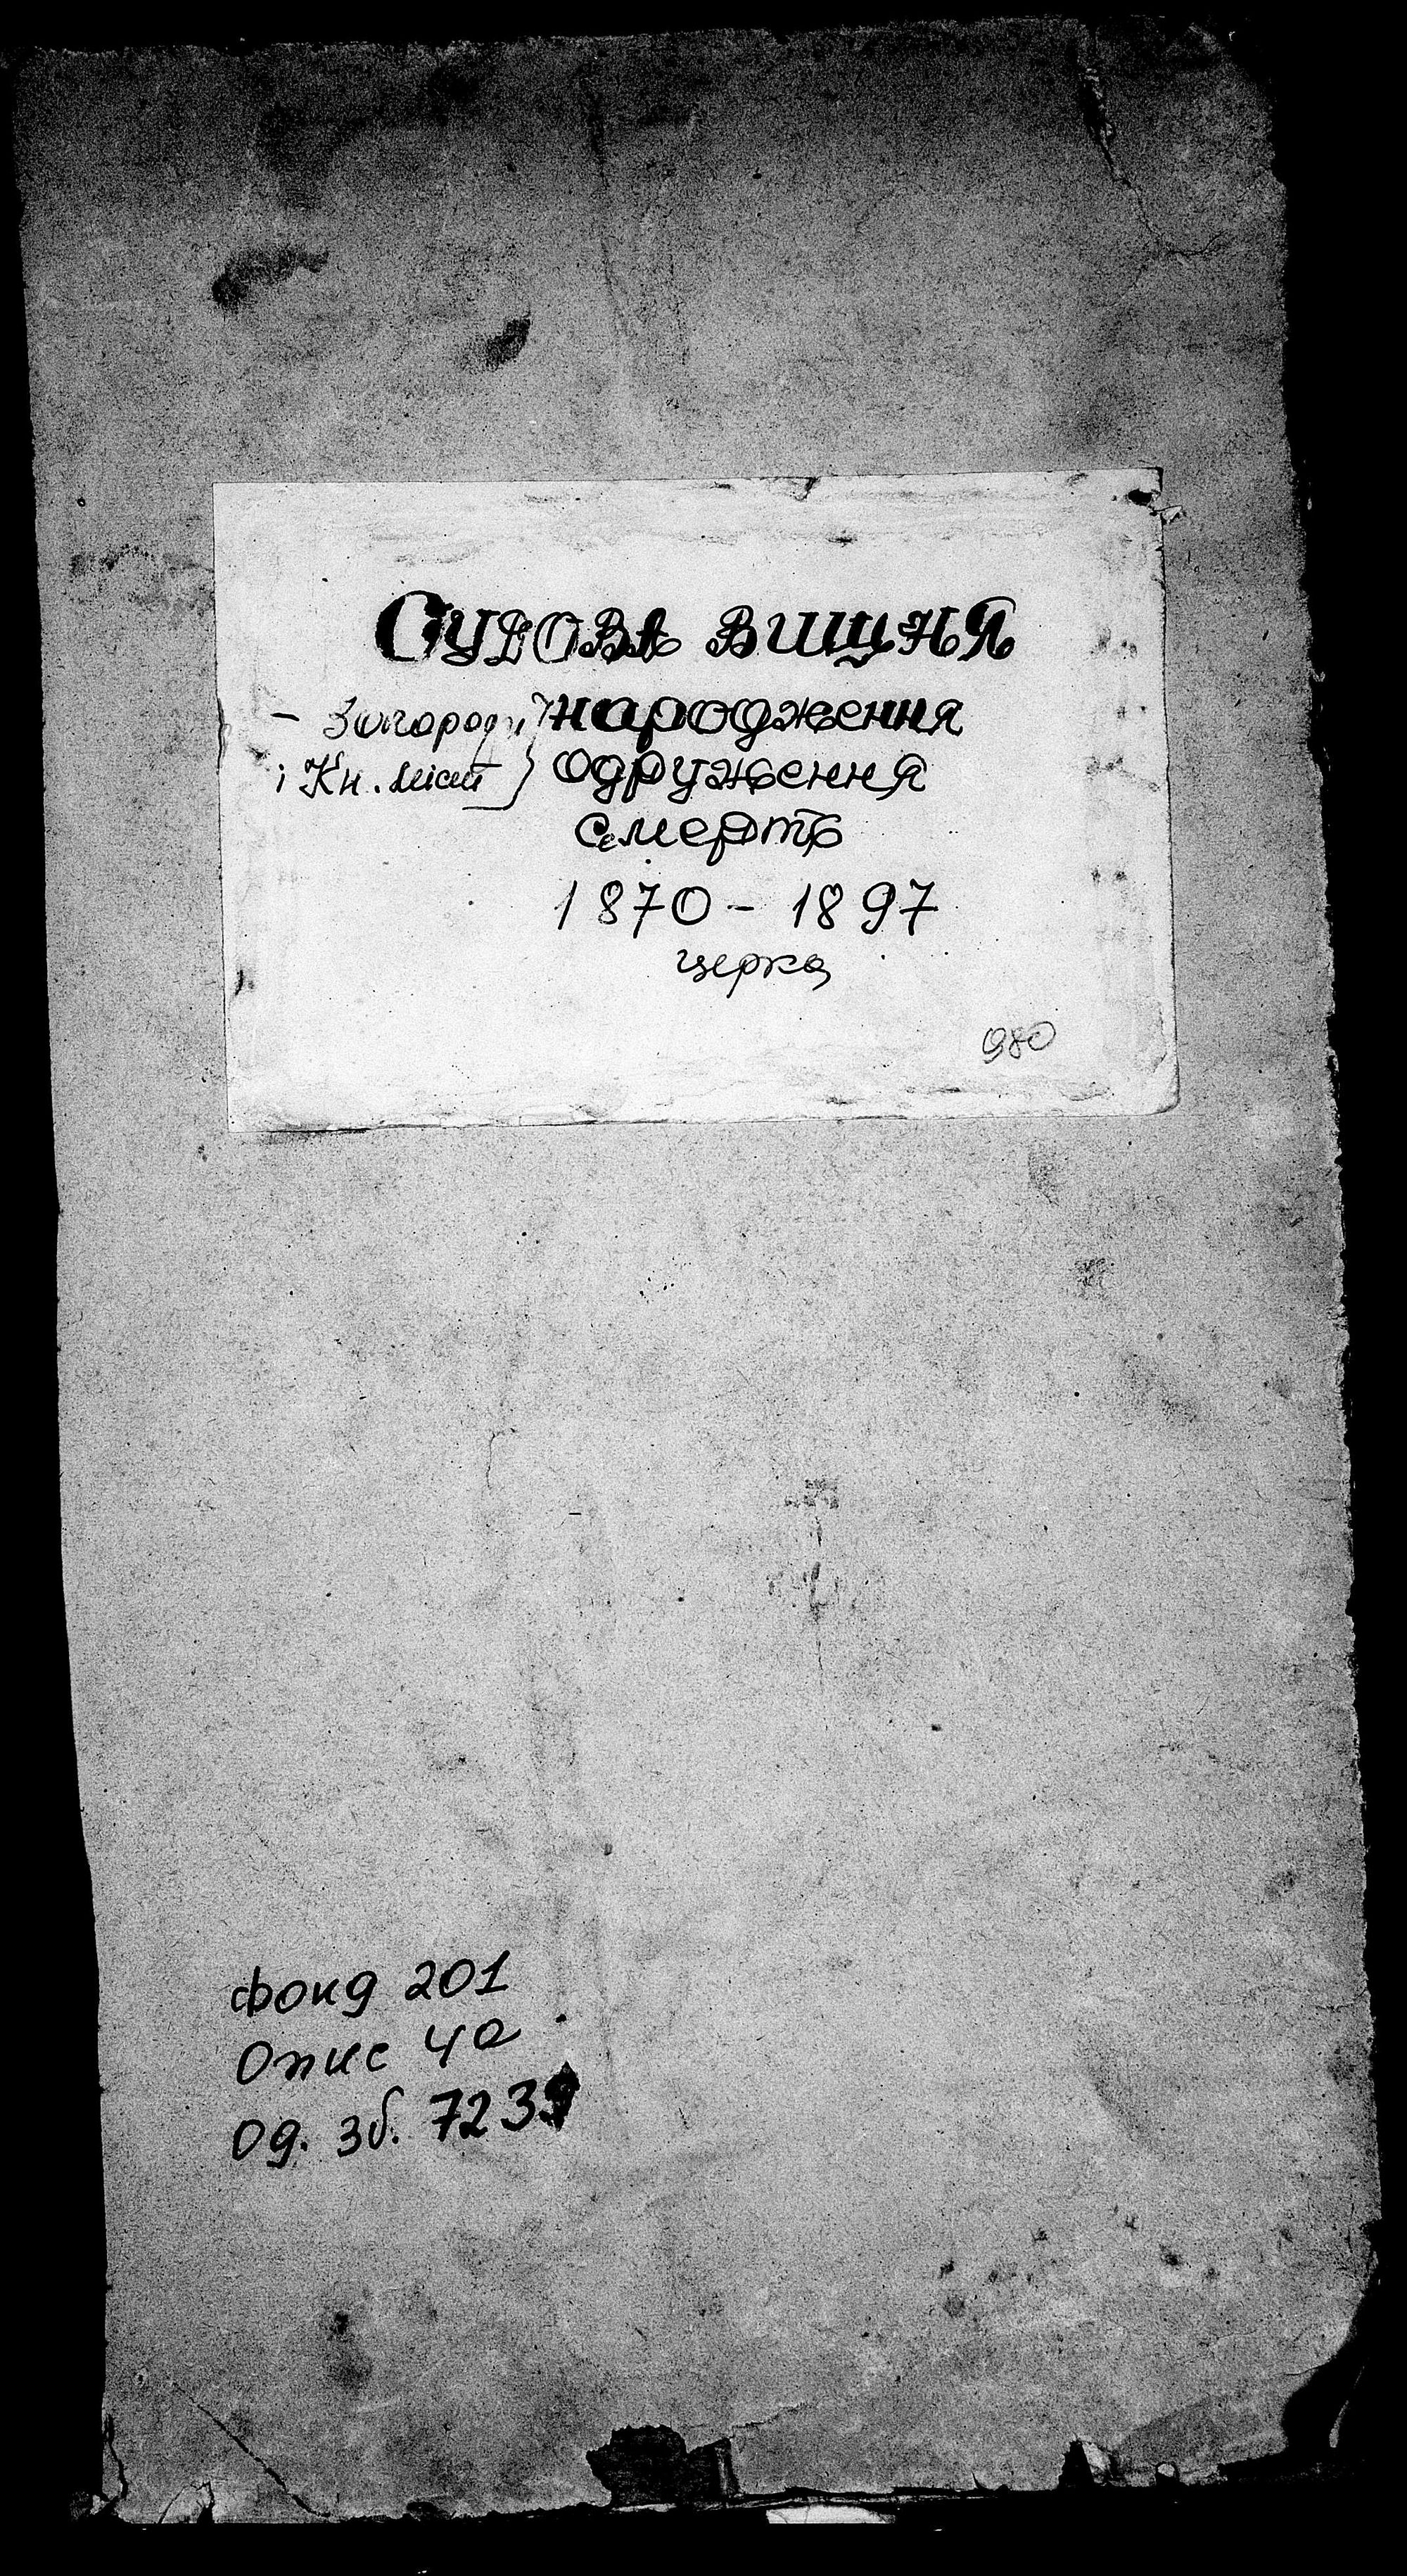 Судова Вишня
– Загороди народження
і Кн. міст одруження
смерть
1870 – 1897
церква
980
Фонд 201
Опис 4а
Од. зб. 7239